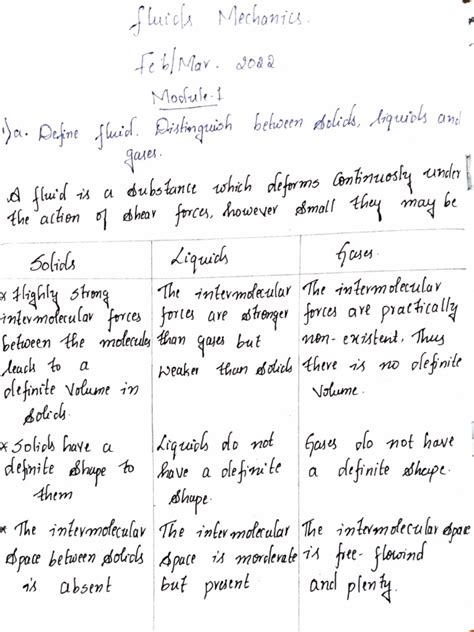 Fluids Mechanics.
Feb/Mar. 2022
Module-1
1)a. Define fluid. Distinguish between solids, liquids and
gases.
A fluid is a substance which deforms continuosly under
the action of shear forces, however small they may be
Solids
Liquids
Gases.
* Highly strong
intermolecular forces
between the molecules
leads to a
definite volume in
solids.
The intermolecular
forces are stronger
than gases but
weaker than solids
The intermolecular
forces are practically
non-existent. Thus
there is no definite
volume.
* Solids have a
definite shape to
them
Liquids do not
have a definite
shape.
Gases do not have
a definite shape.
* The intermolecular
space between solids
is absent
The intermolecular
space is morderate
but present
The intermolecular space
is free-flowind
and plenty.